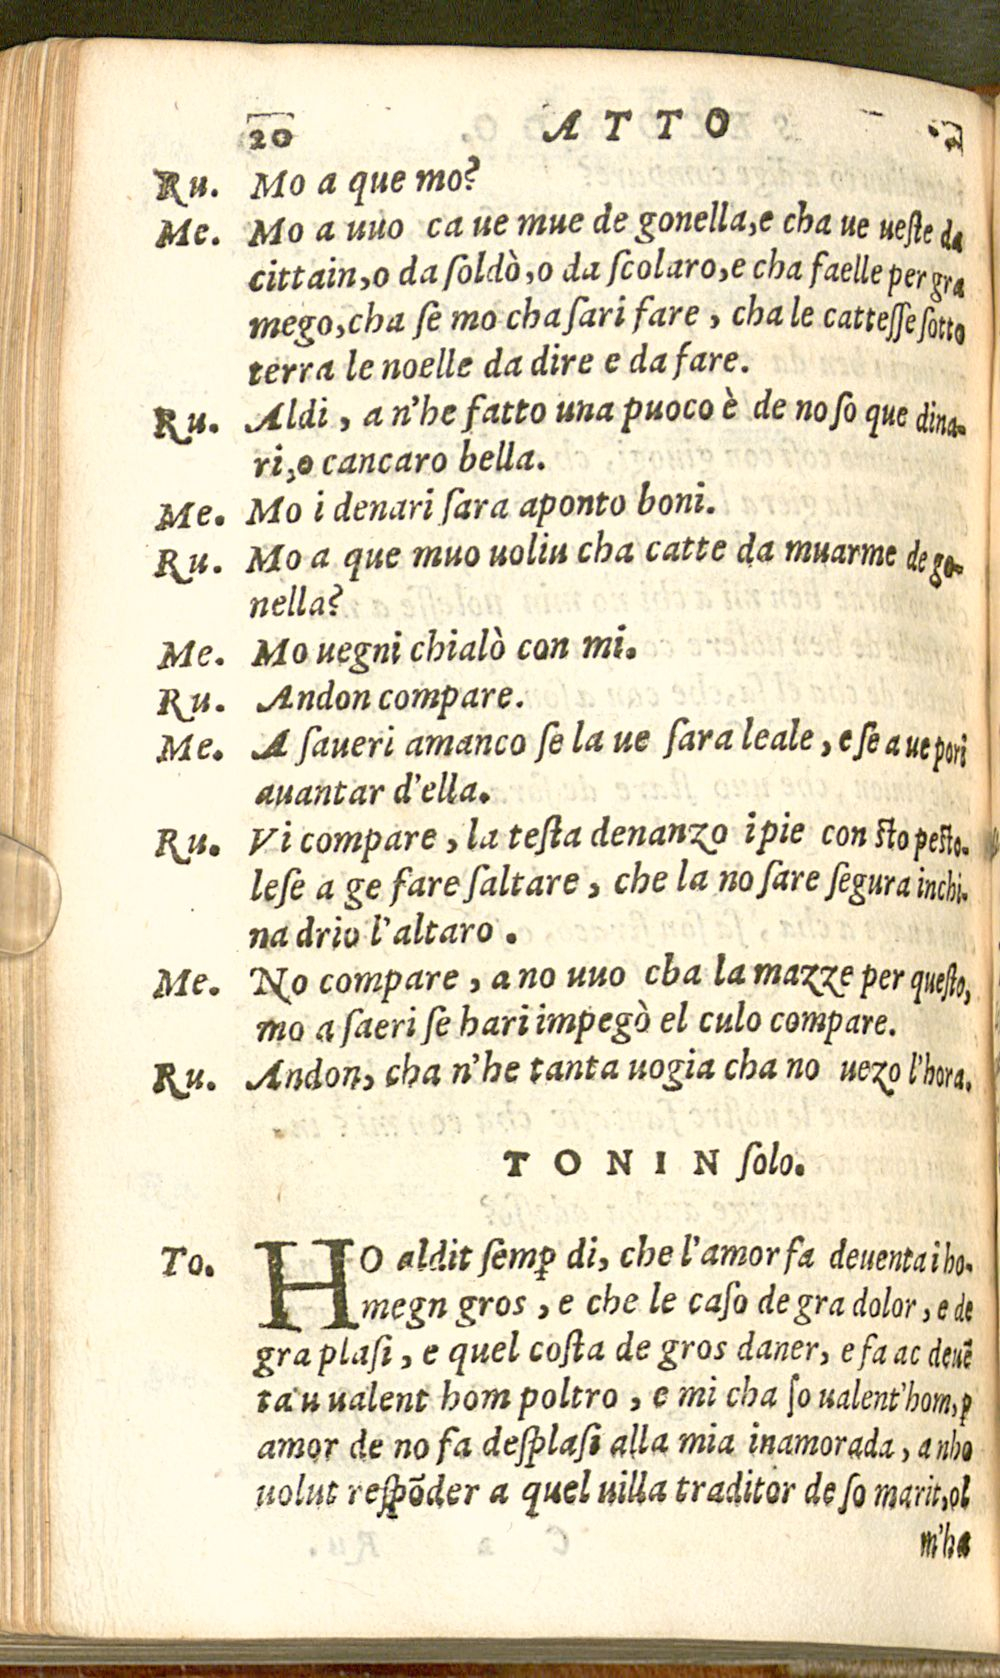 20 ATTO
Ru. Mo a que mo?
Me. Mo a uuo ca ue mue de gonella,e cha ue ueſte da
cittain,o da ſoldò,o da ſcolaro,e cha faelle per gra
mego,cha ſe mo cha ſari fare , cha le catteſſe ſotto
terra le noelle da dire e da fare.
Ru. Aldi , a n'he fatto una puoco è de no ſo que dina-
ri,o cancaro bella.
Me. Mo i denari ſara aponto boni.
Ru. Mo a que muo uoliu cha catte da muarme de go-
nella?
Me. Mo uegni chialò con mi.
Ru. Andon compare.
Me. A ſaueri amanco ſe la ue ſara leale , e ſe a ue pori
auantar d'ella.
Ru. Vi compare , la teſta denanzo i pie con ſto peſto-
leſe a ge fare ſaltare , che la no ſare ſegura inchi-
na drio l'altaro .
Me. No compare , a no uuo cba la mazze per queſto,
mo a ſaeri ſe hari impegò el culo compare.
Ru. Andon, cha n'he tanta uogia cha no uezo l'hora.
TONIN ſolo.
To. HO aldit ſemꝑ di, che l'amor fa deuenta i ho-
megn gros , e che le caſo de gra dolor , e de
gra plaſi , e quel coſta de gros daner, e fa ac deuē
ta u ualent hom poltro , e mi cha ſo ualent'hom,ꝑ
amor de no fa deſplaſi alla mia inamorada , a nho
uolut reſpōder a quel uilla traditor de ſo marit,ol
m'ha